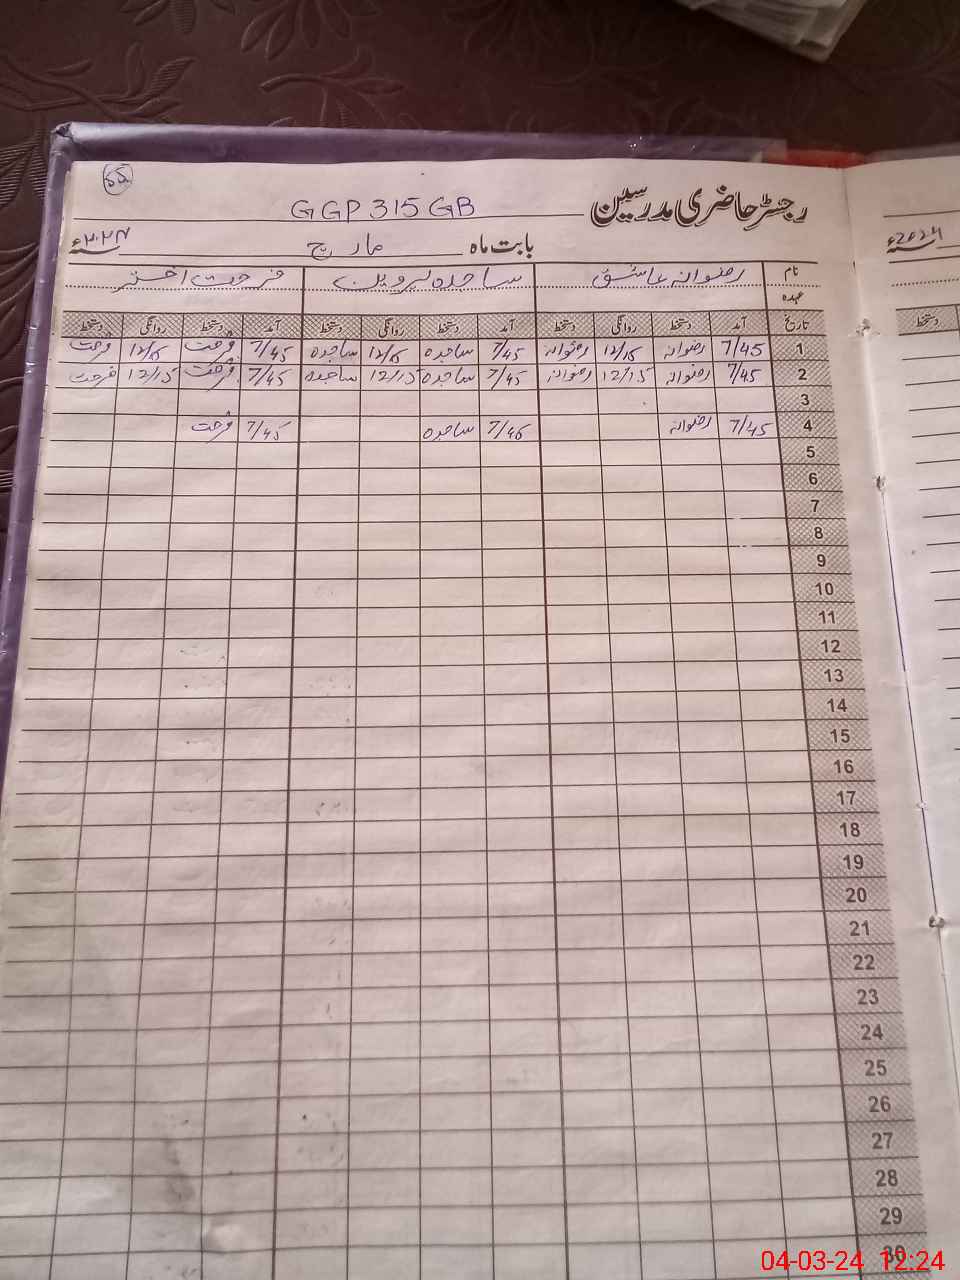 55
رجسٹر حاضری مدرسین GGPS 315 GB
بابت ماہ مارچ سنہ ۲۰۲۴ء
سنہ 2024ء
نام رضوانہ عاشق ساجدہ پروین فرحت اختر
عہدہ
تاریخ آمد دستخط روانگی دستخط آمد دستخط روانگی دستخط آمد دستخط روانگی دستخط
دستخط
1 7/45 رضوانہ 12/15 رضوانہ 7/45 ساجدہ 12/15 ساجدہ 7/45 فرحت 12/15 فرحت
2 7/45 رضوانہ 12/15 رضوانہ 7/45 ساجدہ 12/15 ساجدہ 7/45 فرحت 12/15 فرحت
3
4 7/45 رضوانہ 7/45 ساجدہ 7/45 فرحت
5
6
7
8
9
10
11
12
13
14
15
16
17
18
19
20
21
22
23
24
25
26
27
28
29
30
04-03-24 12:24